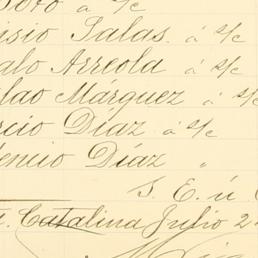 Soto á s/c
isio Salas á s/c
alo Arreola á s/c
lao Márquez á s/c
rcio Díaz á s/c
encio Díaz "
S. E. ú
Catalina Julio 2